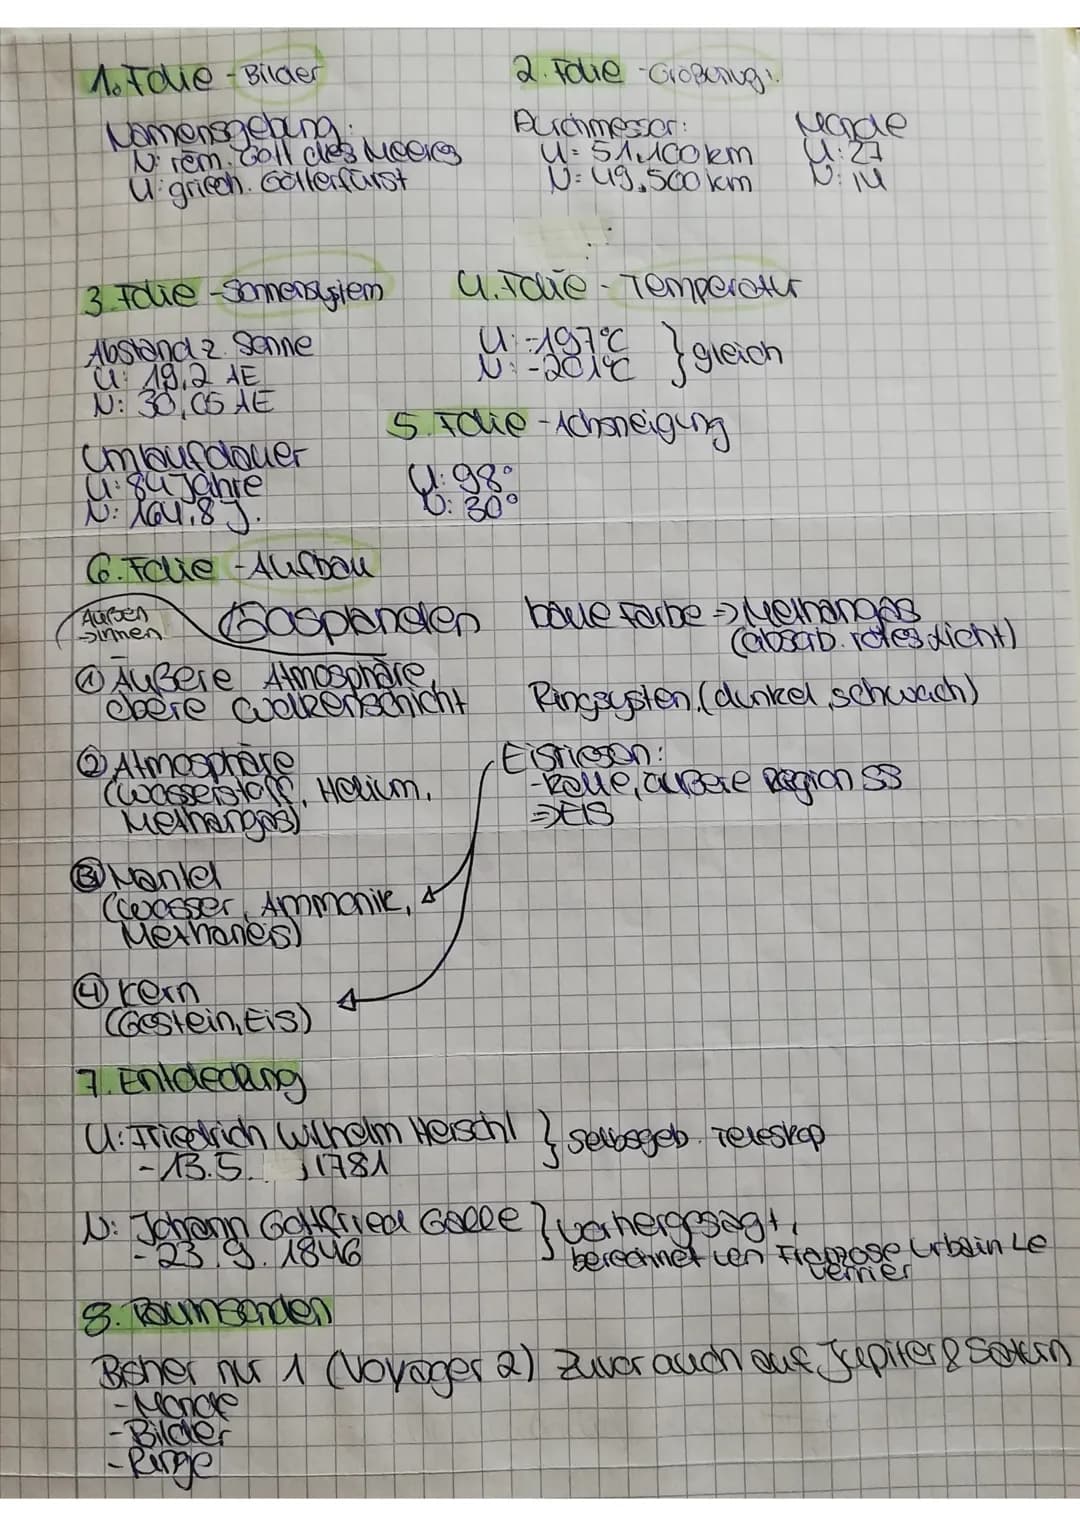 1. Folie - Bilder
Namensgebung:
N: röm. Gott des Meeres
U: griech. Götterfürst
2. Folie -
Durchmesser:
U = 51.100 km
N = 49.500 km
Monde
U: 27
N: 14
3. Folie - Sonnensystem
Abstand z. Sonne
U: 19,2 AE
N: 30,05 AE
Umlaufdauer
U: 84 Jahre
N: 164,8 J.
4. Folie - Temperatur
U: -197°C
N: -201°C } gleich
5. Folie - Achsneigung
U: 98°
N: 30°
6. Folie - Aufbau
Außen
→ innen
Gasplaneten
① Äußere Atmosphäre,
obere Wolkenschicht
② Atmosphäre
(Wasserstoff, Helium,
Methangas)
③ Mantel
(Wasser, Ammonik,
Methaneis)
④ Kern
(Gestein, Eis)
blaue Farbe => Methangas
(absorb. rotes Licht)
Ringsystem (dunkel, schwach)
Eisriesen:
- kalte, äußere Region SS
=> EIS
7. Entdeckung
U: Friedrich Wilhelm Herschl } selbsgeb. Teleskop
- 13.5. 1781
N: Johann Gottfried Galle } vorhergesagt,
- 23.9. 1846
berechnet von Franzose Urbain Le
Verrier
8. Raumsonden
Bisher nur 1 (Voyager 2) zuvor auch auf Jupiter & Saturn
- Monde
- Bilder
- Ringe